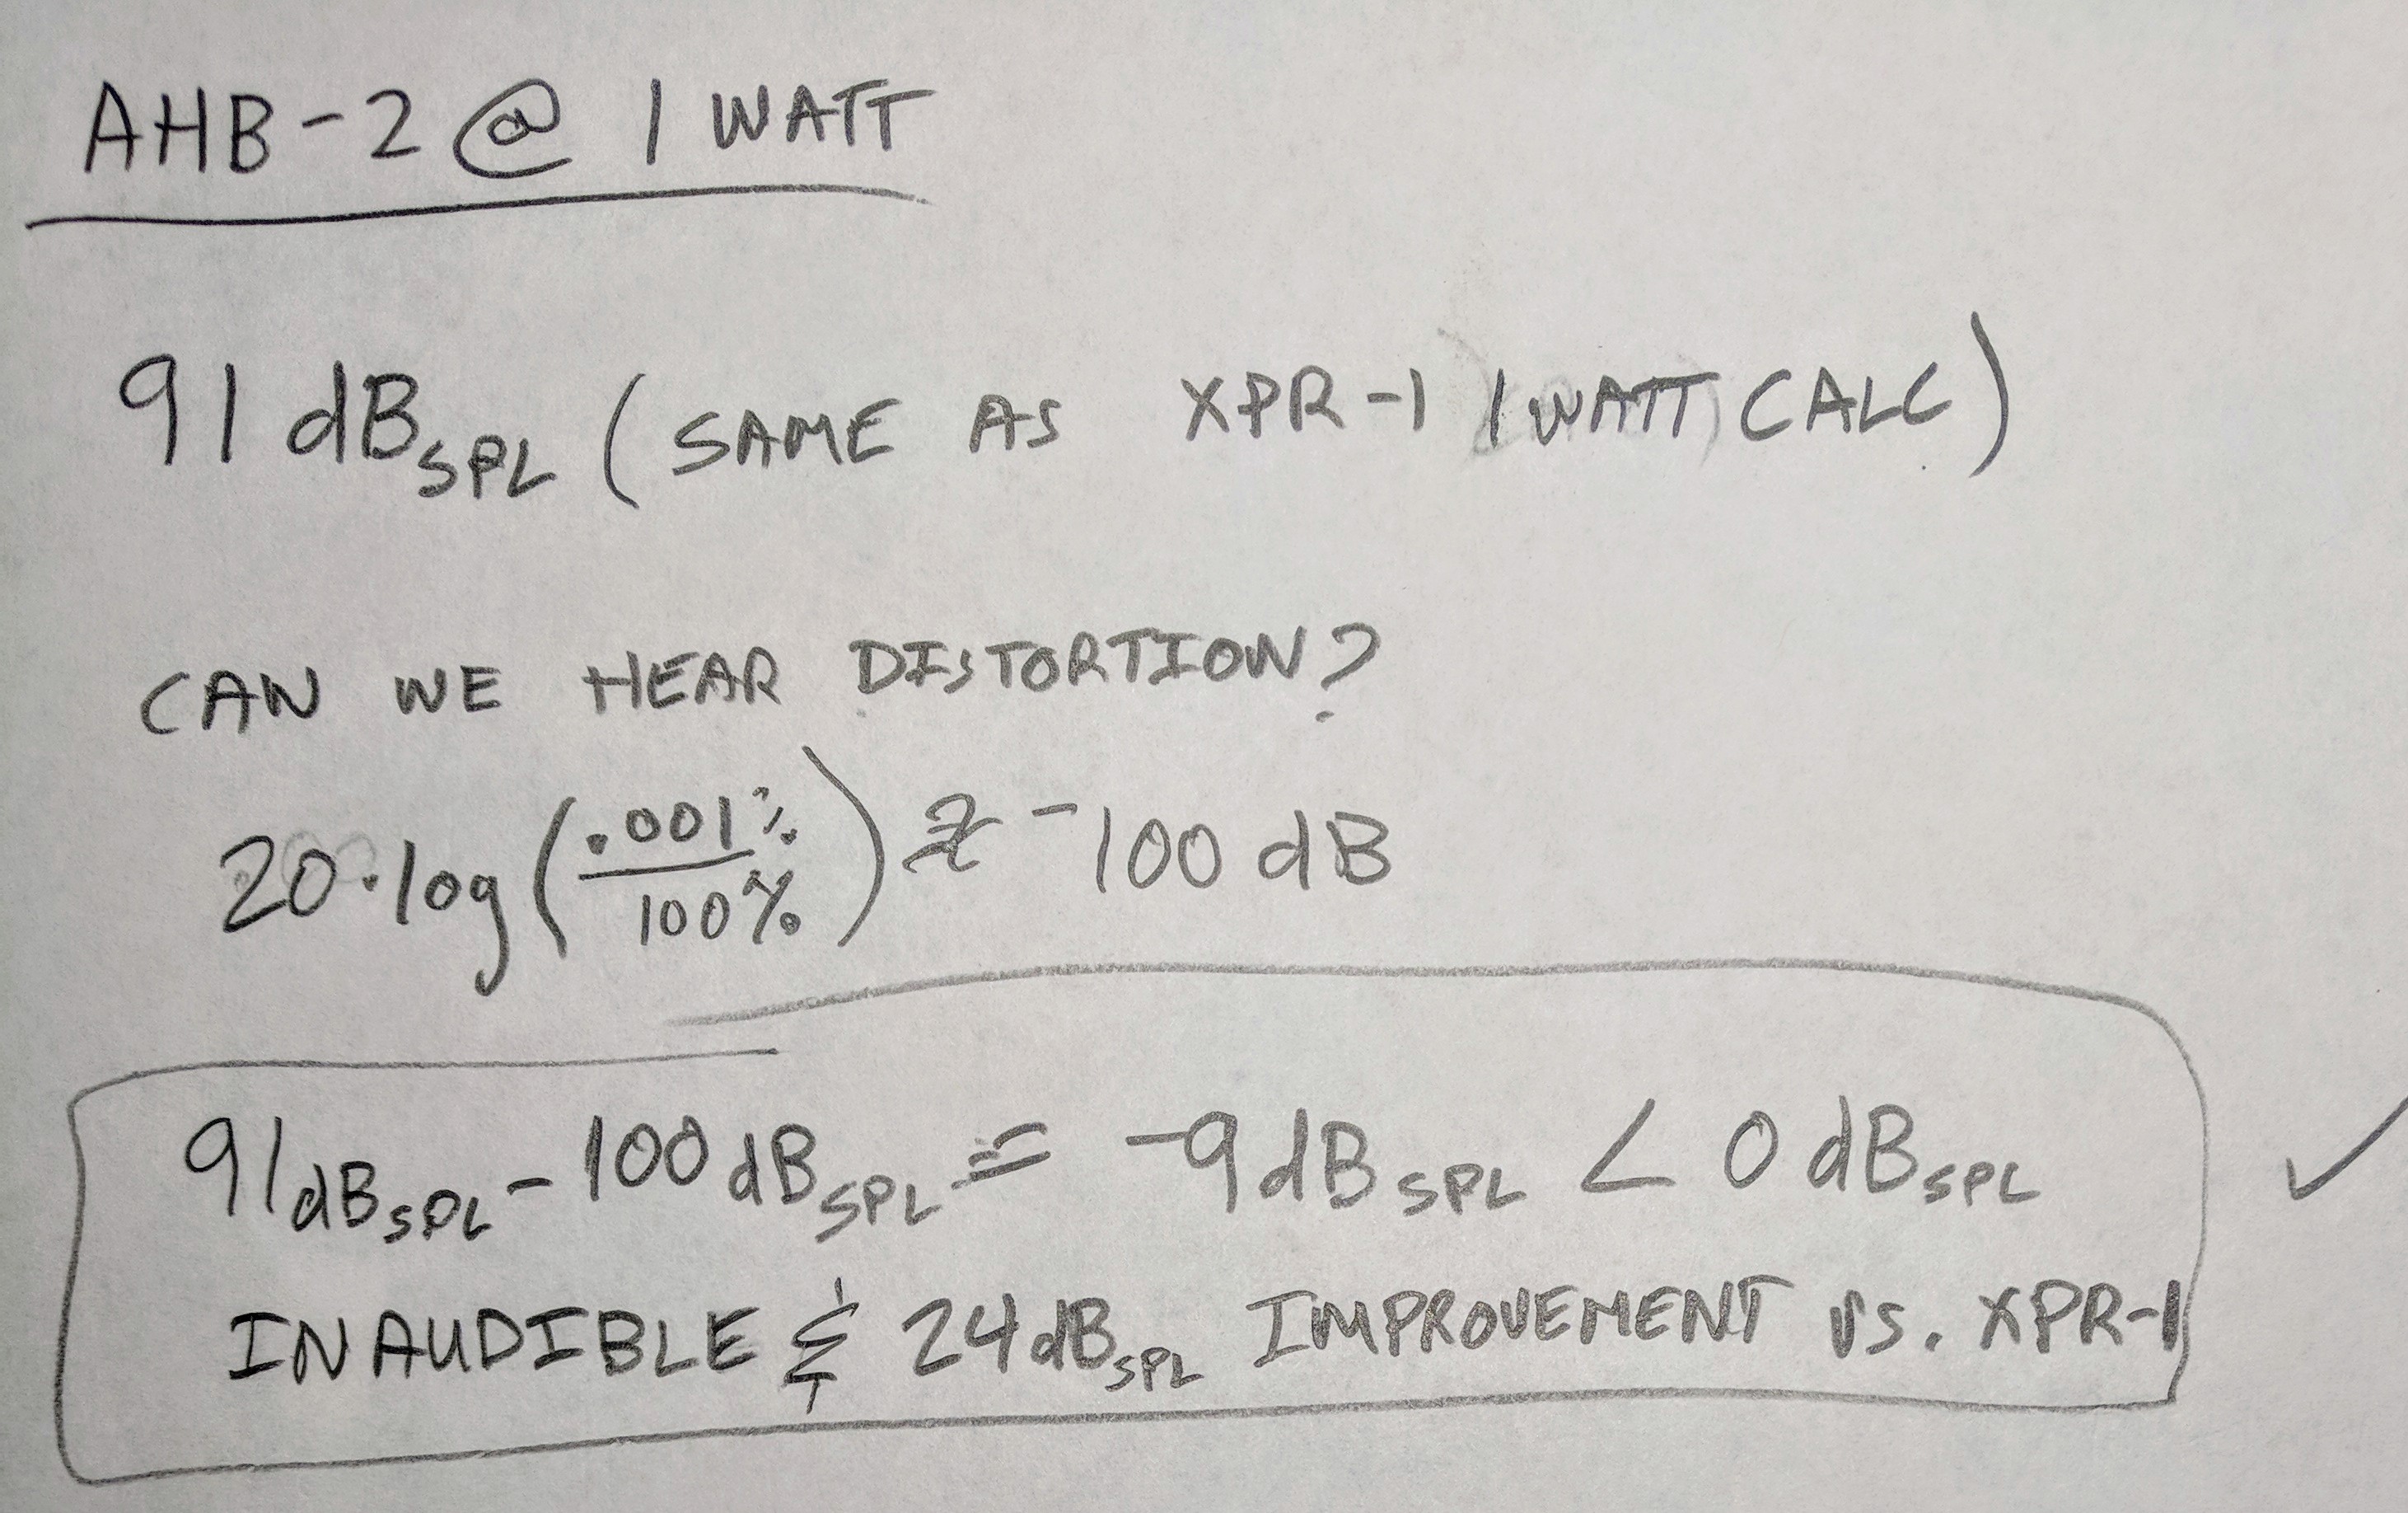 AHB-2 @ 1 WATT
91 dBSPL (SAME AS XPR-1 1 WATT CALC)
CAN WE HEAR DISTORTION?
20·log(.001%/100%) ≈ -100 dB
91dBSPL - 100 dBSPL = -9 dBSPL < 0 dBSPL ✓
INAUDIBLE & 24 dBSPL IMPROVEMENT VS. XPR-1